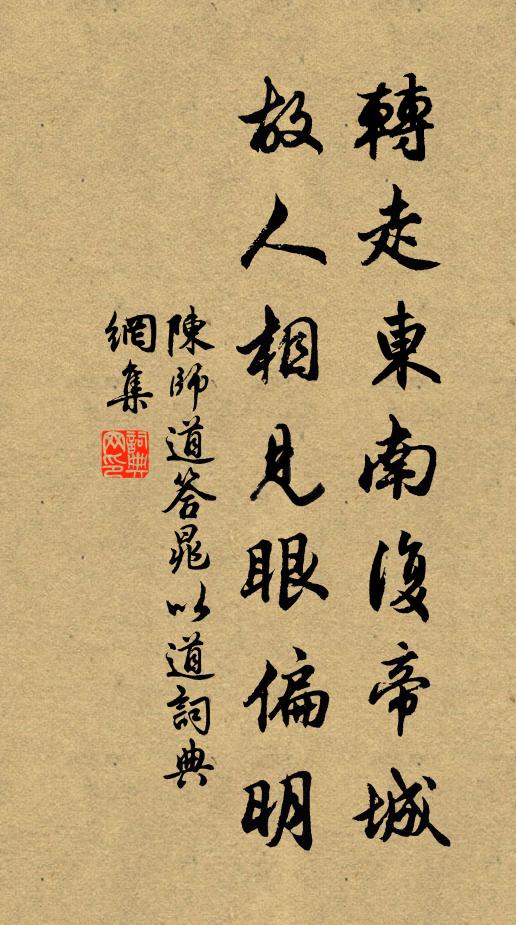 轉走東南復帝城
故人相見眼偏明
陳師道答晁以道詞典
網集
詞典網印